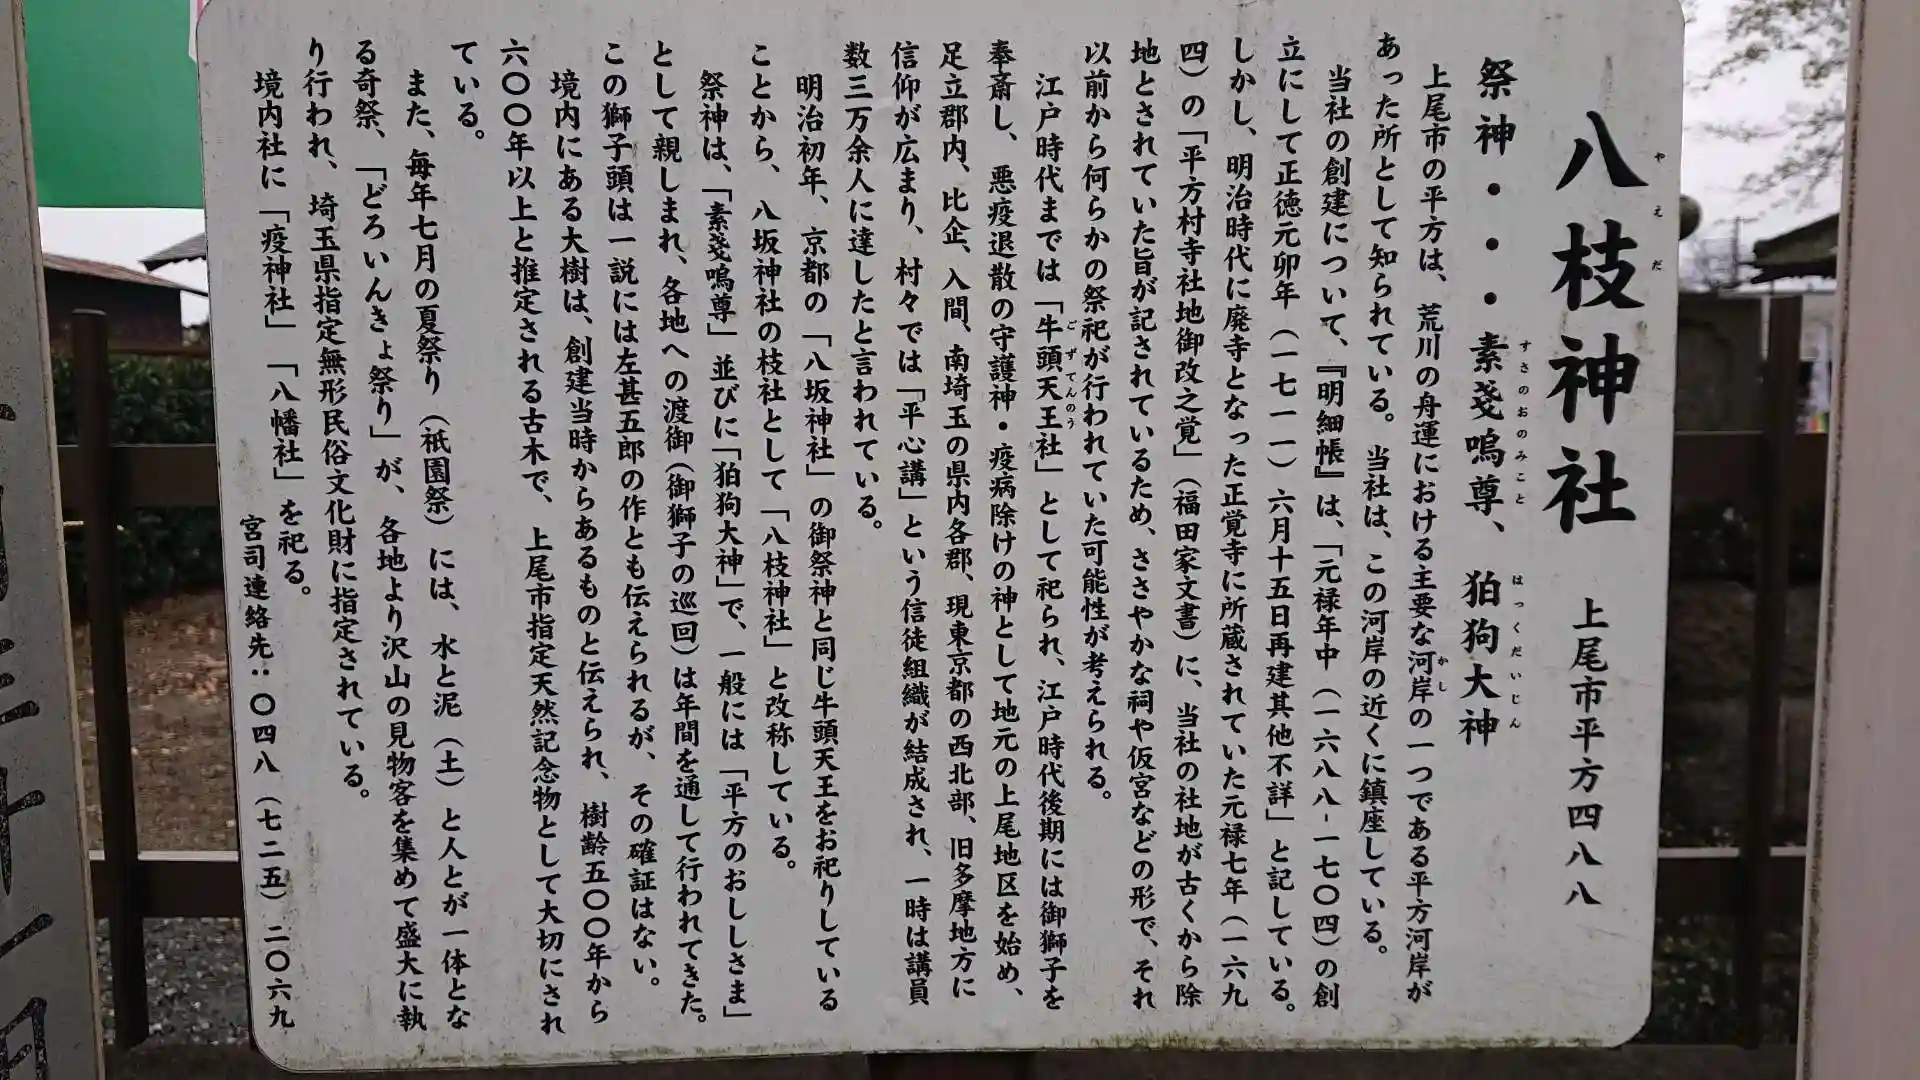 八枝神社　上尾市平方四八八
やえだ
祭神・・・素戔嗚尊、狛狗大神
すさのおのみこと　はっくだいじん
上尾市の平方は、荒川の舟運における主要な河岸の一つである平方河岸が
かし
あった所として知られている。当社は、この河岸の近くに鎮座している。
当社の創建について、『明細帳』は、「元禄年中（一六八八-一七〇四）の創
立にして正徳元卯年（一七一一）六月十五日再建其他不詳」と記している。
しかし、明治時代に廃寺となった正覚寺に所蔵されていた元禄七年（一六九
四）の「平方村寺社地御改之覚」（福田家文書）に、当社の社地が古くから除
地とされていた旨が記されているため、ささやかな祠や仮宮などの形で、それ
以前から何らかの祭祀が行われていた可能性が考えられる。
江戸時代までは「牛頭天王社」として祀られ、江戸時代後期には御獅子を
ごずてんのう
奉斎し、悪疫退散の守護神・疫病除けの神として地元の上尾地区を始め、
足立郡内、比企、入間、南埼玉の県内各郡、現東京都の西北部、旧多摩地方に
信仰が広まり、村々では「平心講」という信徒組織が結成され、一時は講員
数三万余人に達したと言われている。
明治初年、京都の「八坂神社」の御祭神と同じ牛頭天王をお祀りしている
ことから、八坂神社の枝社として「八枝神社」と改称している。
祭神は、「素戔嗚尊」並びに「狛狗大神」で、一般には「平方のおししさま」
として親しまれ、各地への渡御（御獅子の巡回）は年間を通して行われてきた。
この獅子頭は一説には左甚五郎の作とも伝えられるが、その確証はない。
境内にある大樹は、創建当時からあるものと伝えられ、樹齢五〇〇年から
六〇〇年以上と推定される古木で、上尾市指定天然記念物として大切にされ
ている。
また、毎年七月の夏祭り（祇園祭）には、水と泥（土）と人とが一体とな
る奇祭、「どろいんきょ祭り」が、各地より沢山の見物客を集めて盛大に執
り行われ、埼玉県指定無形民俗文化財に指定されている。
境内社に「疫神社」「八幡社」を祀る。
宮司連絡先：〇四八（七二五）二〇六九